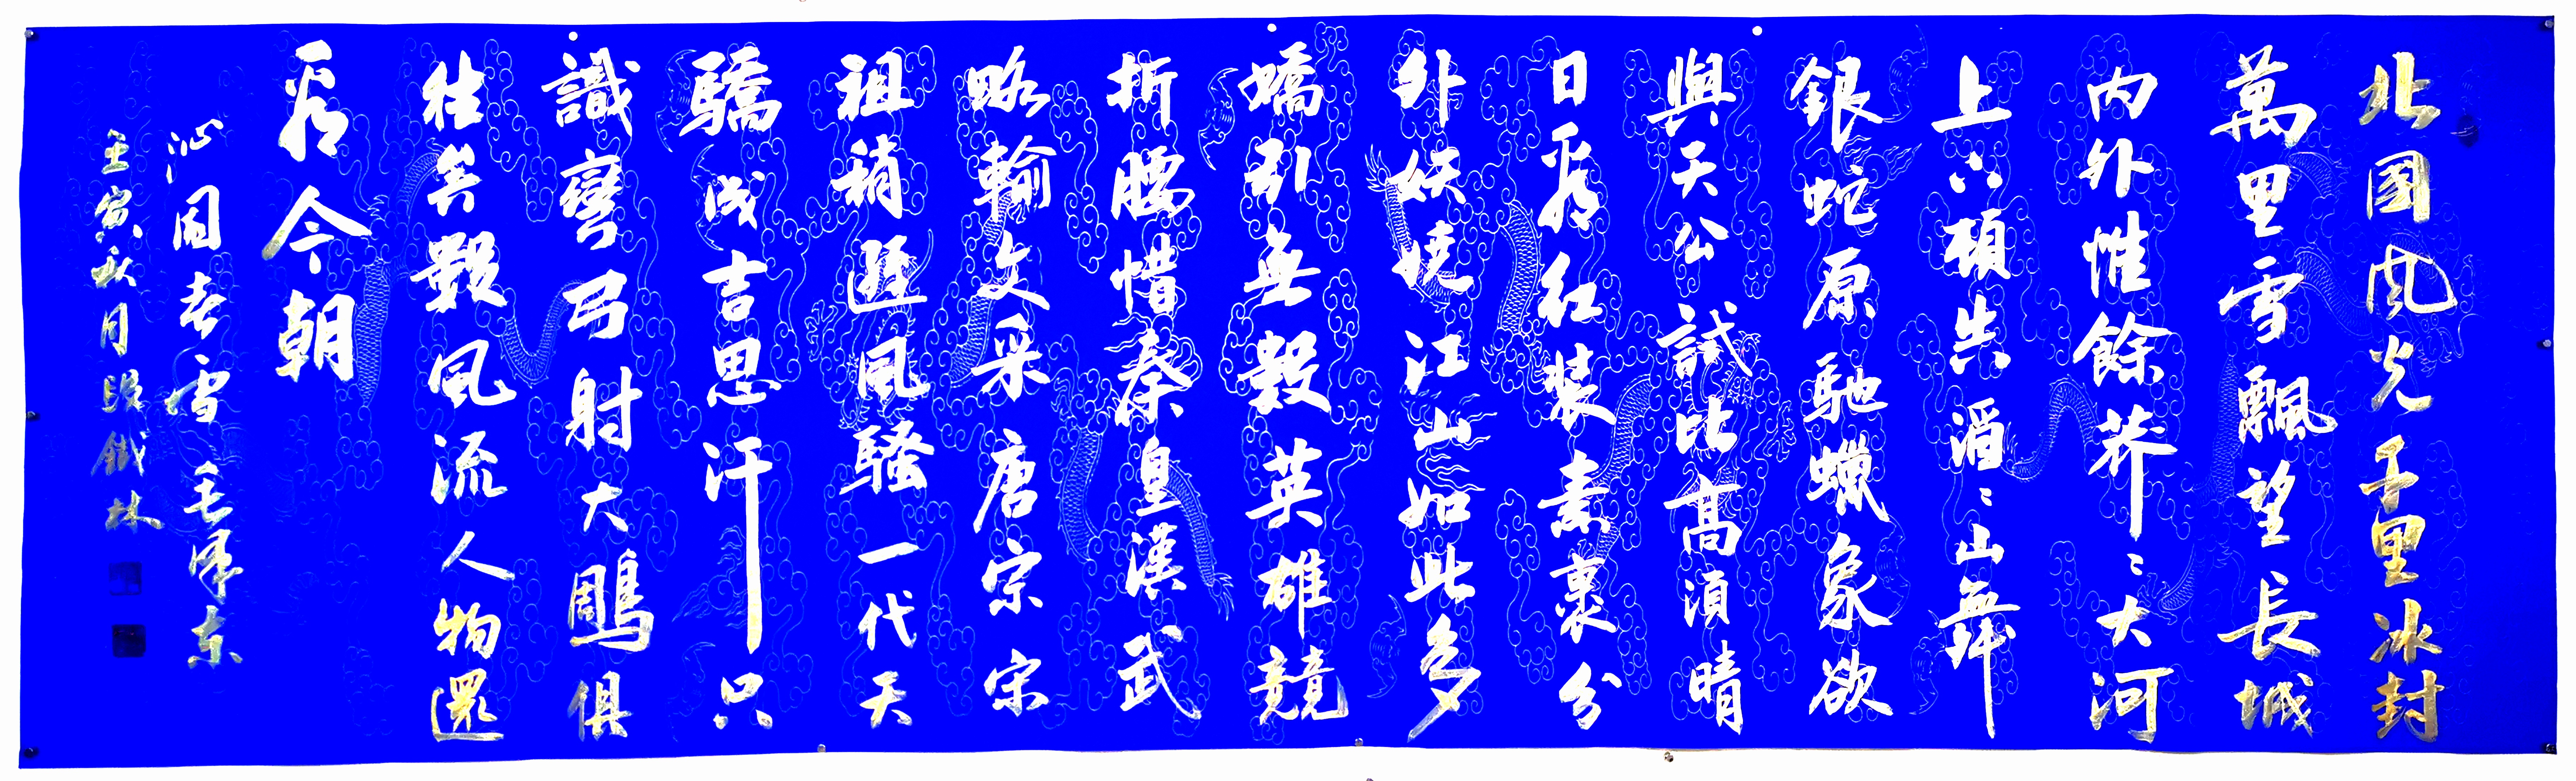 北國風光千里冰封
萬里雪飄望長城
内外惟餘莽〻大河
上下頓失滔〻山舞
銀蛇原馳蠟象欲
與天公試比高須晴
日看紅裝素裹分
外妖嬈江山如此多
嬌引無數英雄競
折腰惜秦皇漢武
略輸文采唐宗宋
祖稍遜風騷一代天
驕成吉思汗只
識彎弓射大鵰俱
往矣數風流人物還
看今朝
沁園春雪毛澤東
壬寅秋月段鐵林